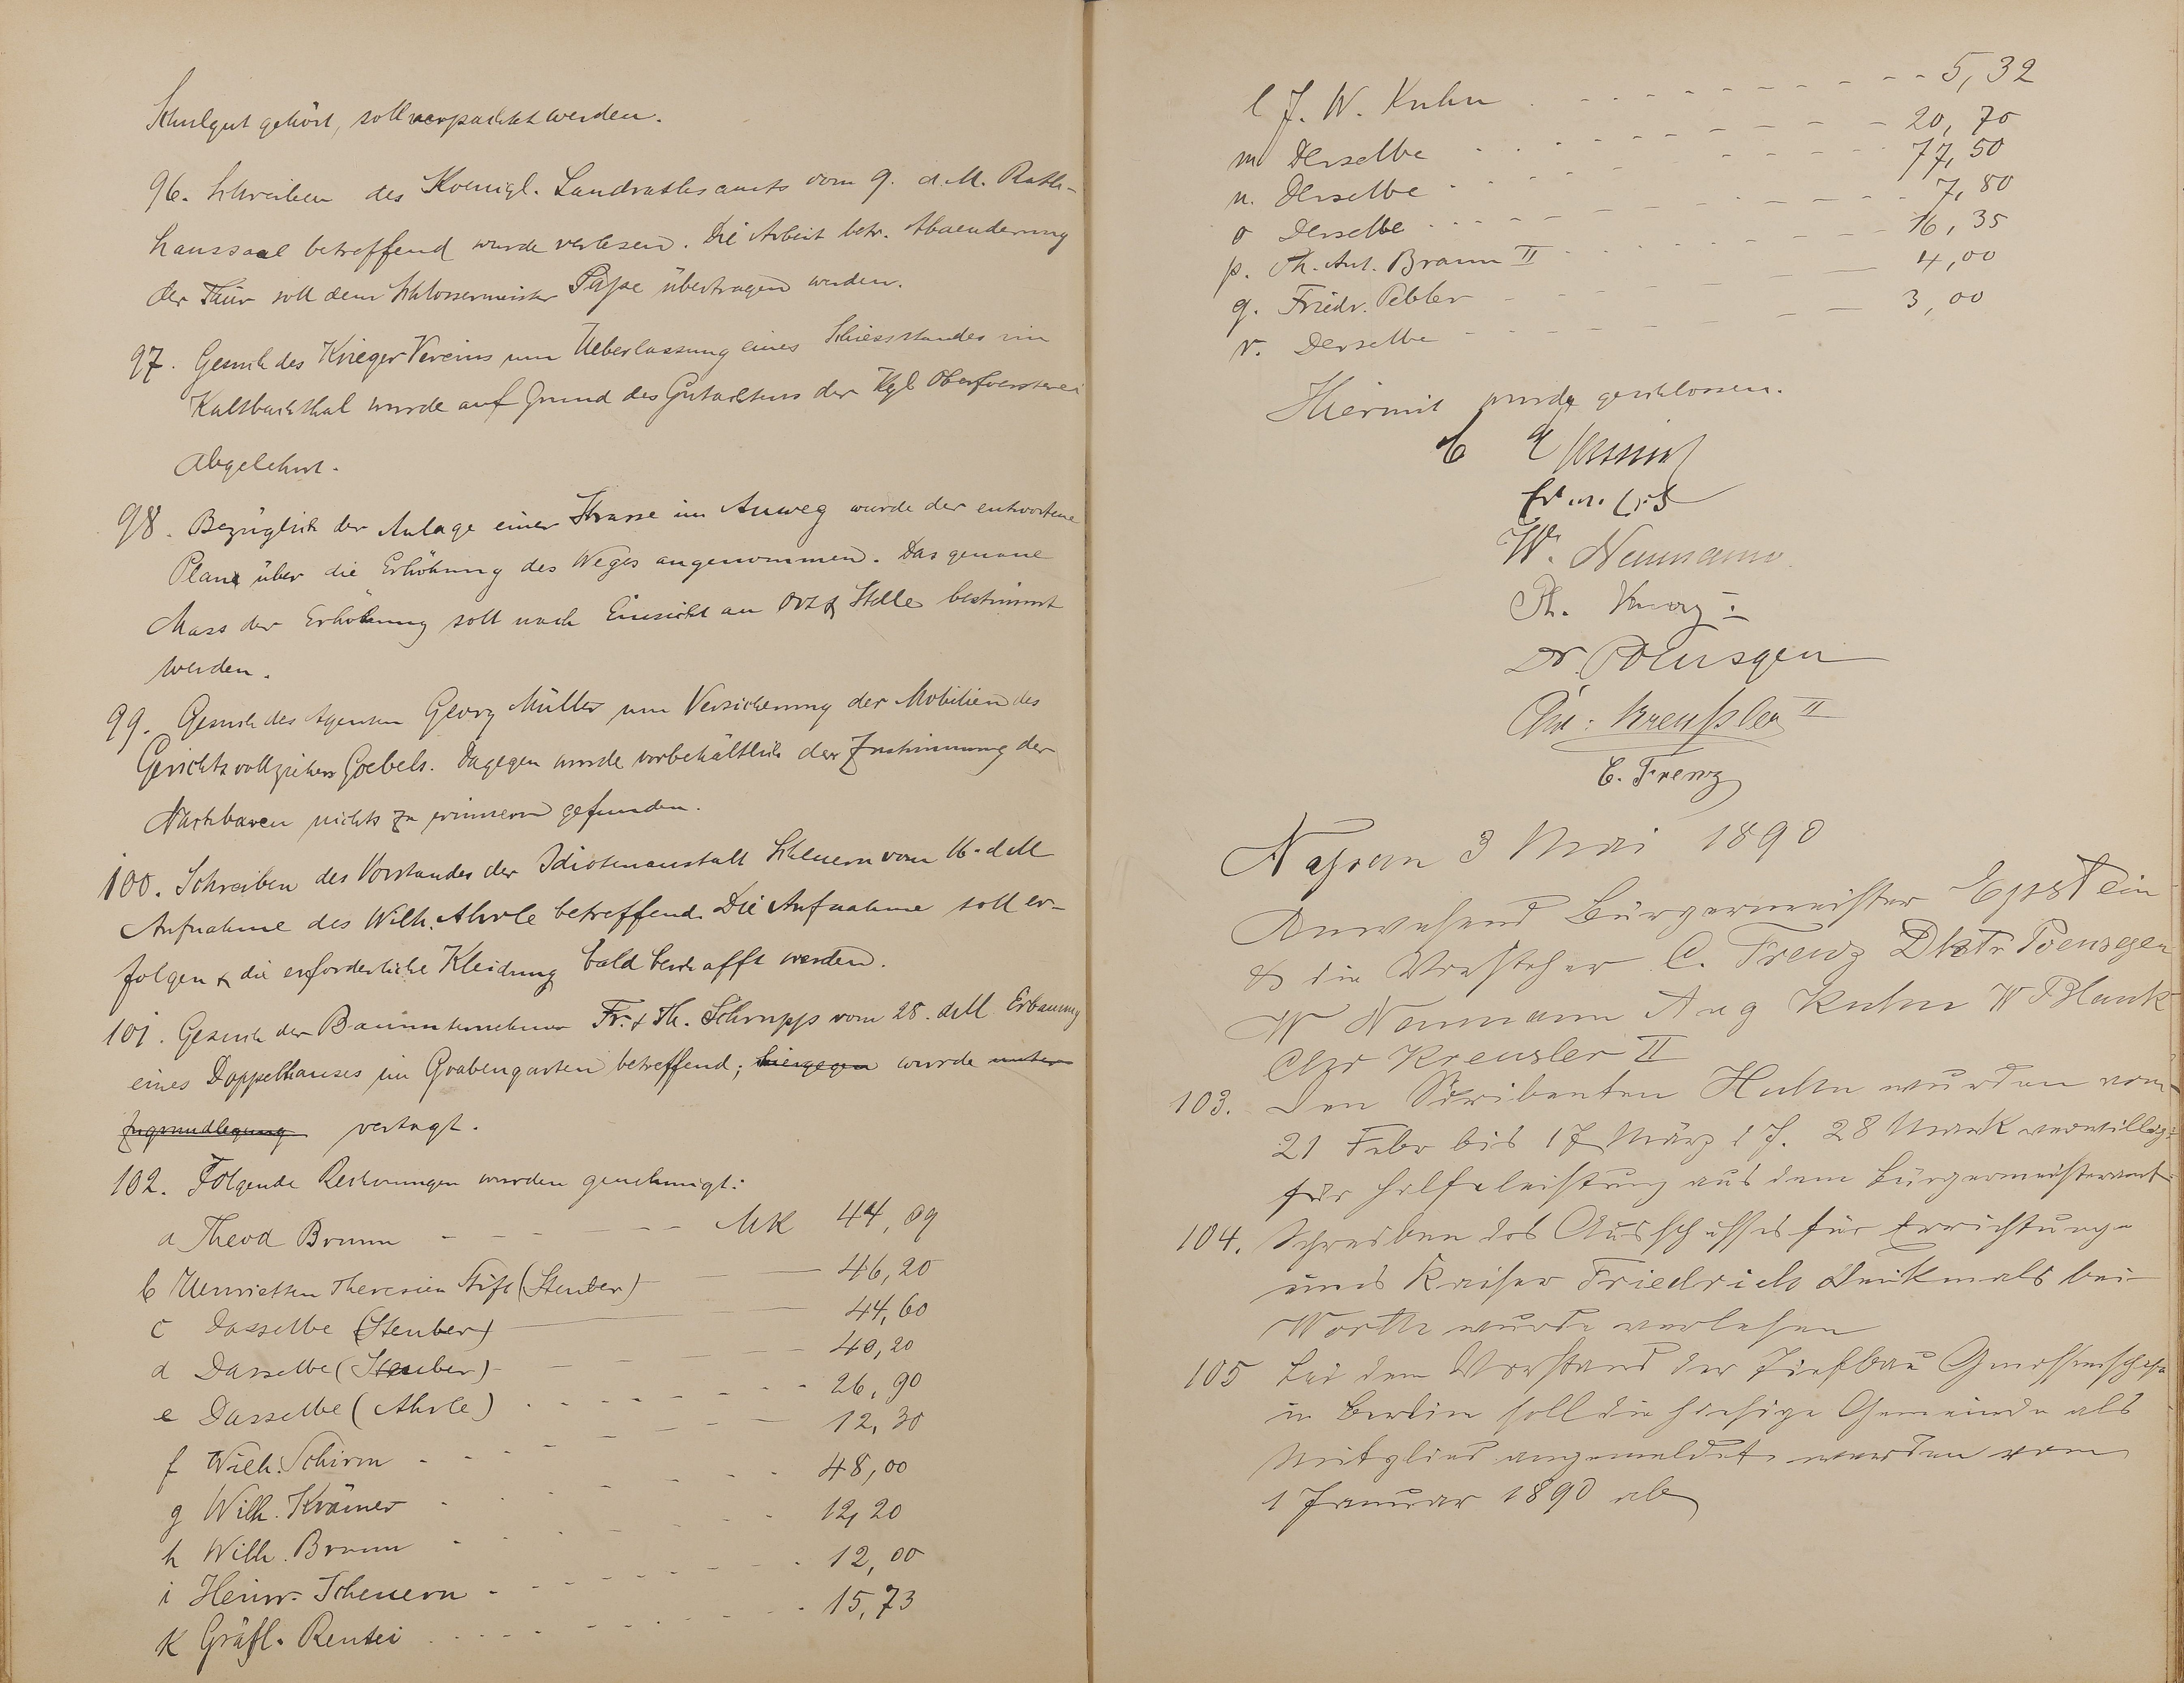 Schulgut gehört, soll verpachtet werden.
96. Schreiben des Koenigl. Landrathsamts vom 9. d. M. Rath-
haussaal betreffend wurde verlesen. Die Arbeit betr. Abaenderung
der Thür soll dem Schlossermeister Pape übertragen werden.
97. Gesuch des Krieger Vereins um Ueberlassung eines Schiessstandes im
Kaltbachthal wurde auf Grund des Gutachtens der Kgl Oberfoersterei
abgelehnt.
98. Bezüglich der Anlage einer Strasse im Auweg wurde der entworfene
Plan über die Erhöhung des Weges angenommen. Das genaue
Mass der Erhöhung soll nach Einsicht an Ort & Stelle bestimmt
werden.
99. Gesuch des Agenten Georg Müller um Versicherung der Mobilien des
Gerichtsvollziehers Goebels. Dagegen wurde vorbehältlich der Zustimmung der
Nachbaren nichts zu erinnern gefunden.
100. Schreiben des Vorstandes der Idiotenanstalt Scheuern vom 16. d M
Aufnahme des Wilh. Ahrle betreffend. Die Aufnahme soll er-
folgen & die erforderliche Kleidung bald beschafft werden.
101. Gesuch der Bauunternehmer Fr. & Th. Schrupps vom 28. d M Erbauung
eines Doppelhauses im Grabengarten betreffend; hiergegen wurde unter
Zugrundlegung vertagt.
102. Folgende Rechnungen wurden genehmigt:
a Theod Bruun - - - - - MK 44,09
b Henrietten Theresien Stift (Steuber) 46,20
c Dasselbe (Steuber) 44,60
d Dasselbe (Steuber) 40,20
e Dasselbe (Ahrle) 26,90
f Wilh. Schirm 12,30
g Wilh. Krämer 48,00
h Wilh. Bruun 12,20
i Heinr. Scheuern 12,00
k Gräfl. Rentei 15,73
l J. W. Kuhn 5,32
m Derselbe 20,70
n. Derselbe 77,50
o Derselbe 7,80
p. Ph. Ant. Braun II 16,35
q. Friedr. Pebler 4,00
r. Derselbe 3,00
Hiermit wurde geschlossen.
W. Neumann
Ph. Knorz I
Dr. Poensgen
Chr. Kreußler II
C. Frenz
Nassau 3 Mai 1890
Anwesend Bürgermeister Epstein
& die Vorsteher C. Frenz Dktr Poensgen
W Neumann Aug Kuhn W Blank
Chr Kreusler II
103. Den Scribenten Huhn wurden vom
21 Febr bis 17 März l J. 28 Mark verwilligt
für Hilfeleistung auf dem Bürgermeisteramt
104. Schreiben des Ausschusses für Errichtung
eines Kaiser Friedrich Denkmals bei
Worth wurde verlesen
105 Bei dem Vorstand der Tiefbau Genossenschaft
in Berlin soll die hiesige Gemeinde als
Mitglied angemeldet werden vom
1 Januar 1890 ab